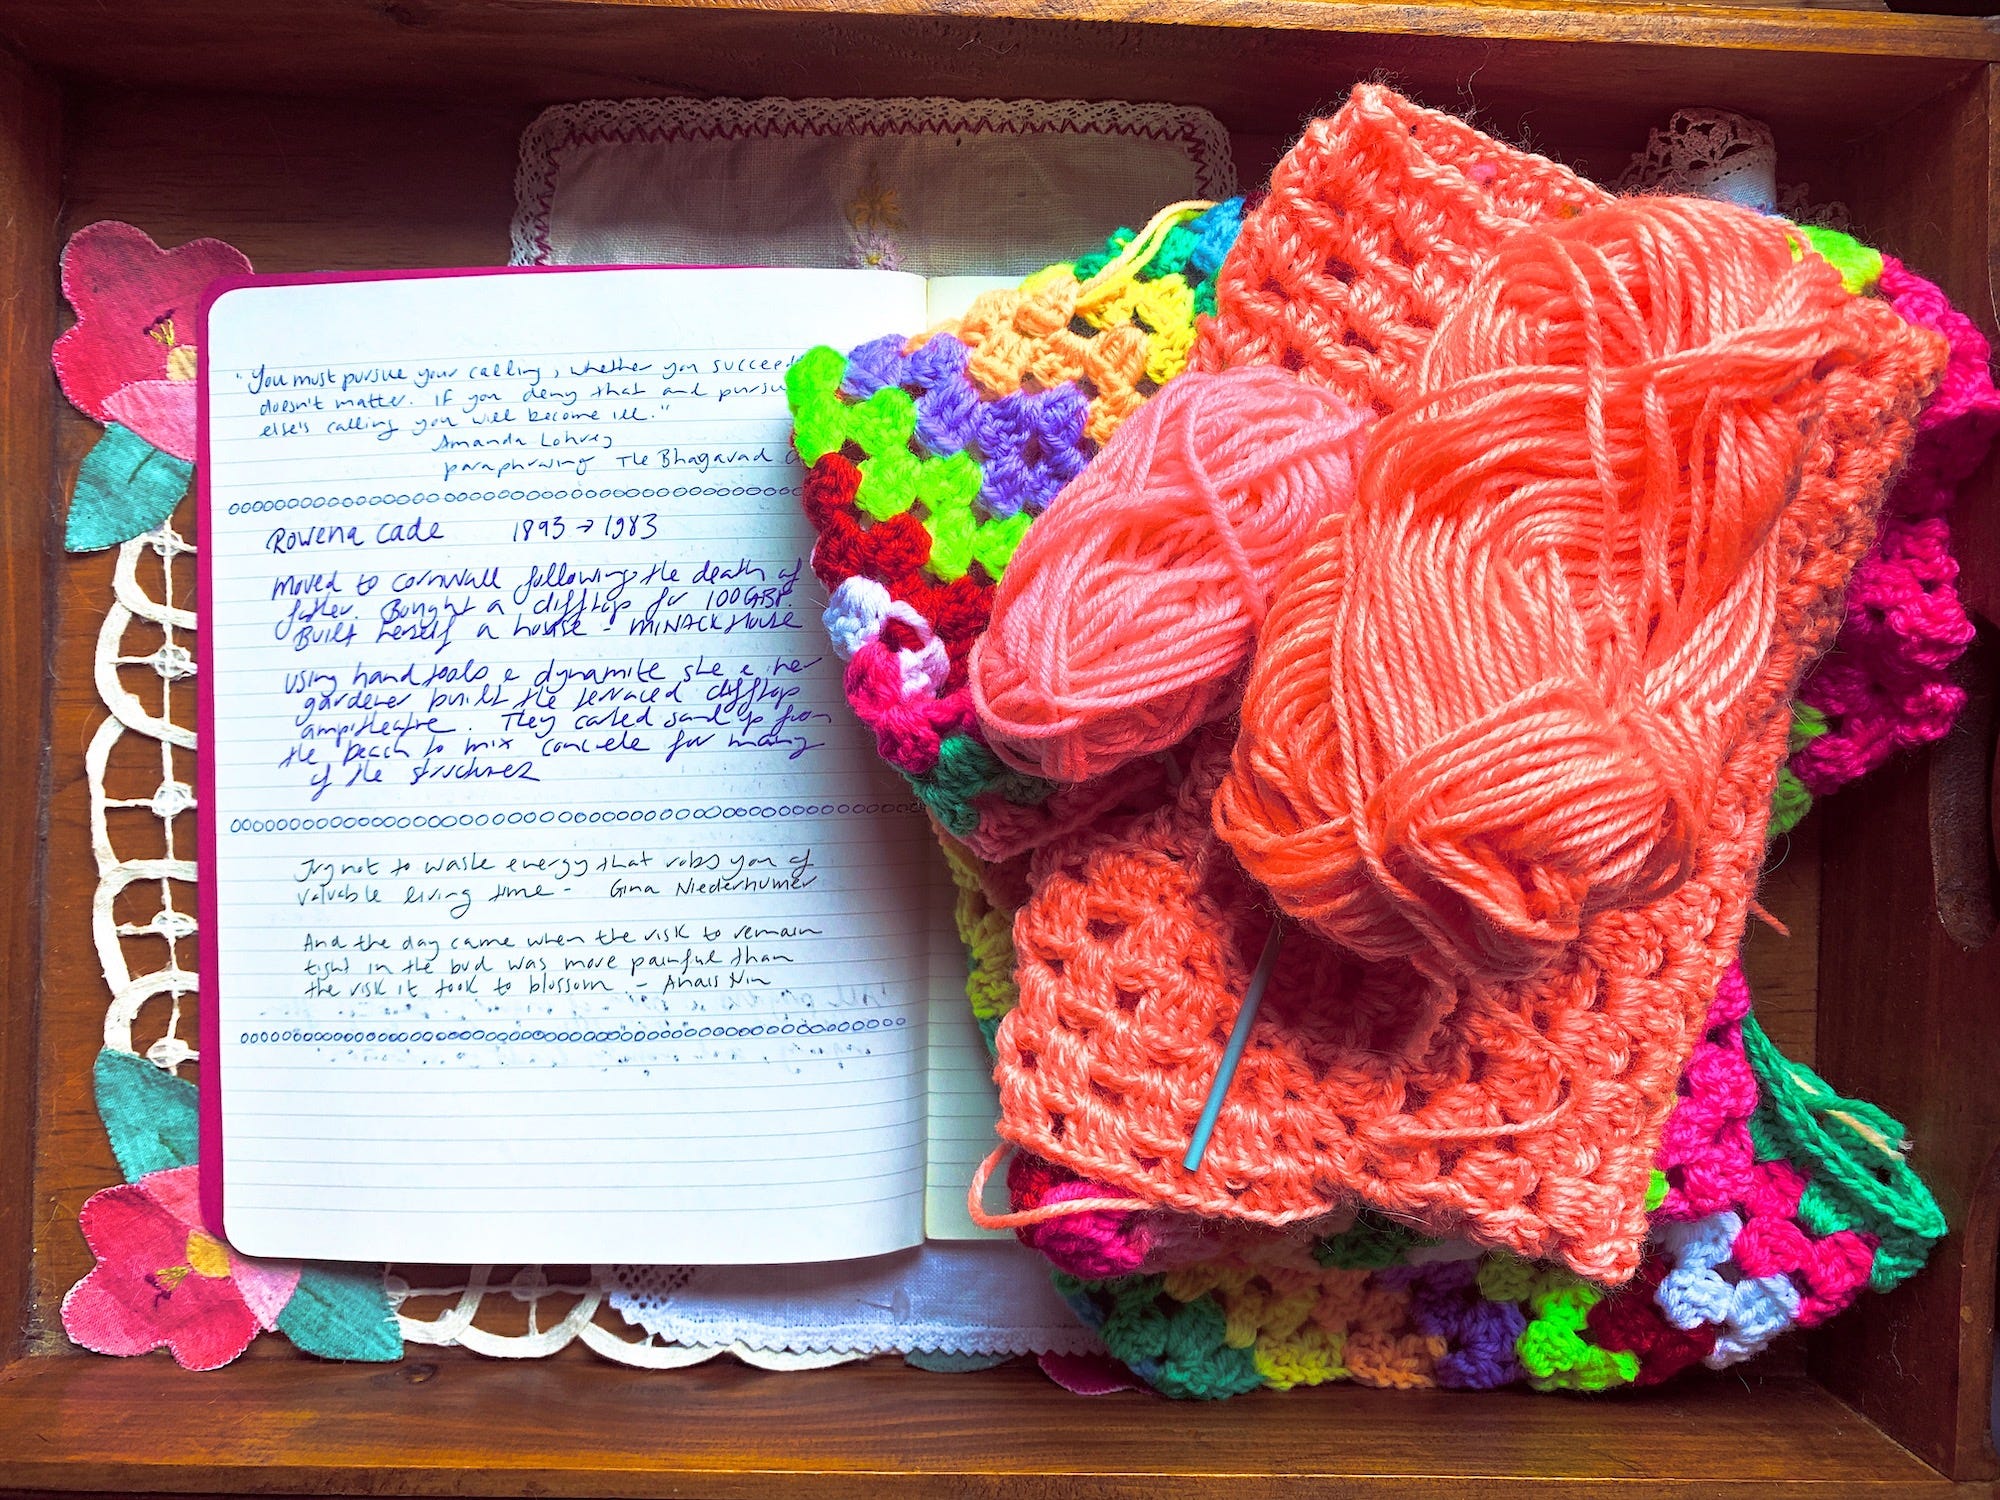 "You must pursue your calling, whether you succeed
doesn't matter. If you deny that and pursue
else's calling you will become ill."
Amanda Lohrey
paraphrasing The Bhagavad
Rowena Cade 1893 → 1983
moved to Cornwall following the death of
father. Bought a clifftop for 100GBP.
Built herself a house - MINACK House
using hand tools & dynamite she & her
gardener built the terraced clifftop
ampitheatre. They carted sand up from
the beach to mix concrete for many
of the structures
Try not to waste energy that robs you of
valuable living time - Gina Niederhumer
And the day came when the risk to remain
tight in the bud was more painful than
the risk it took to blossom. - Anais Nin